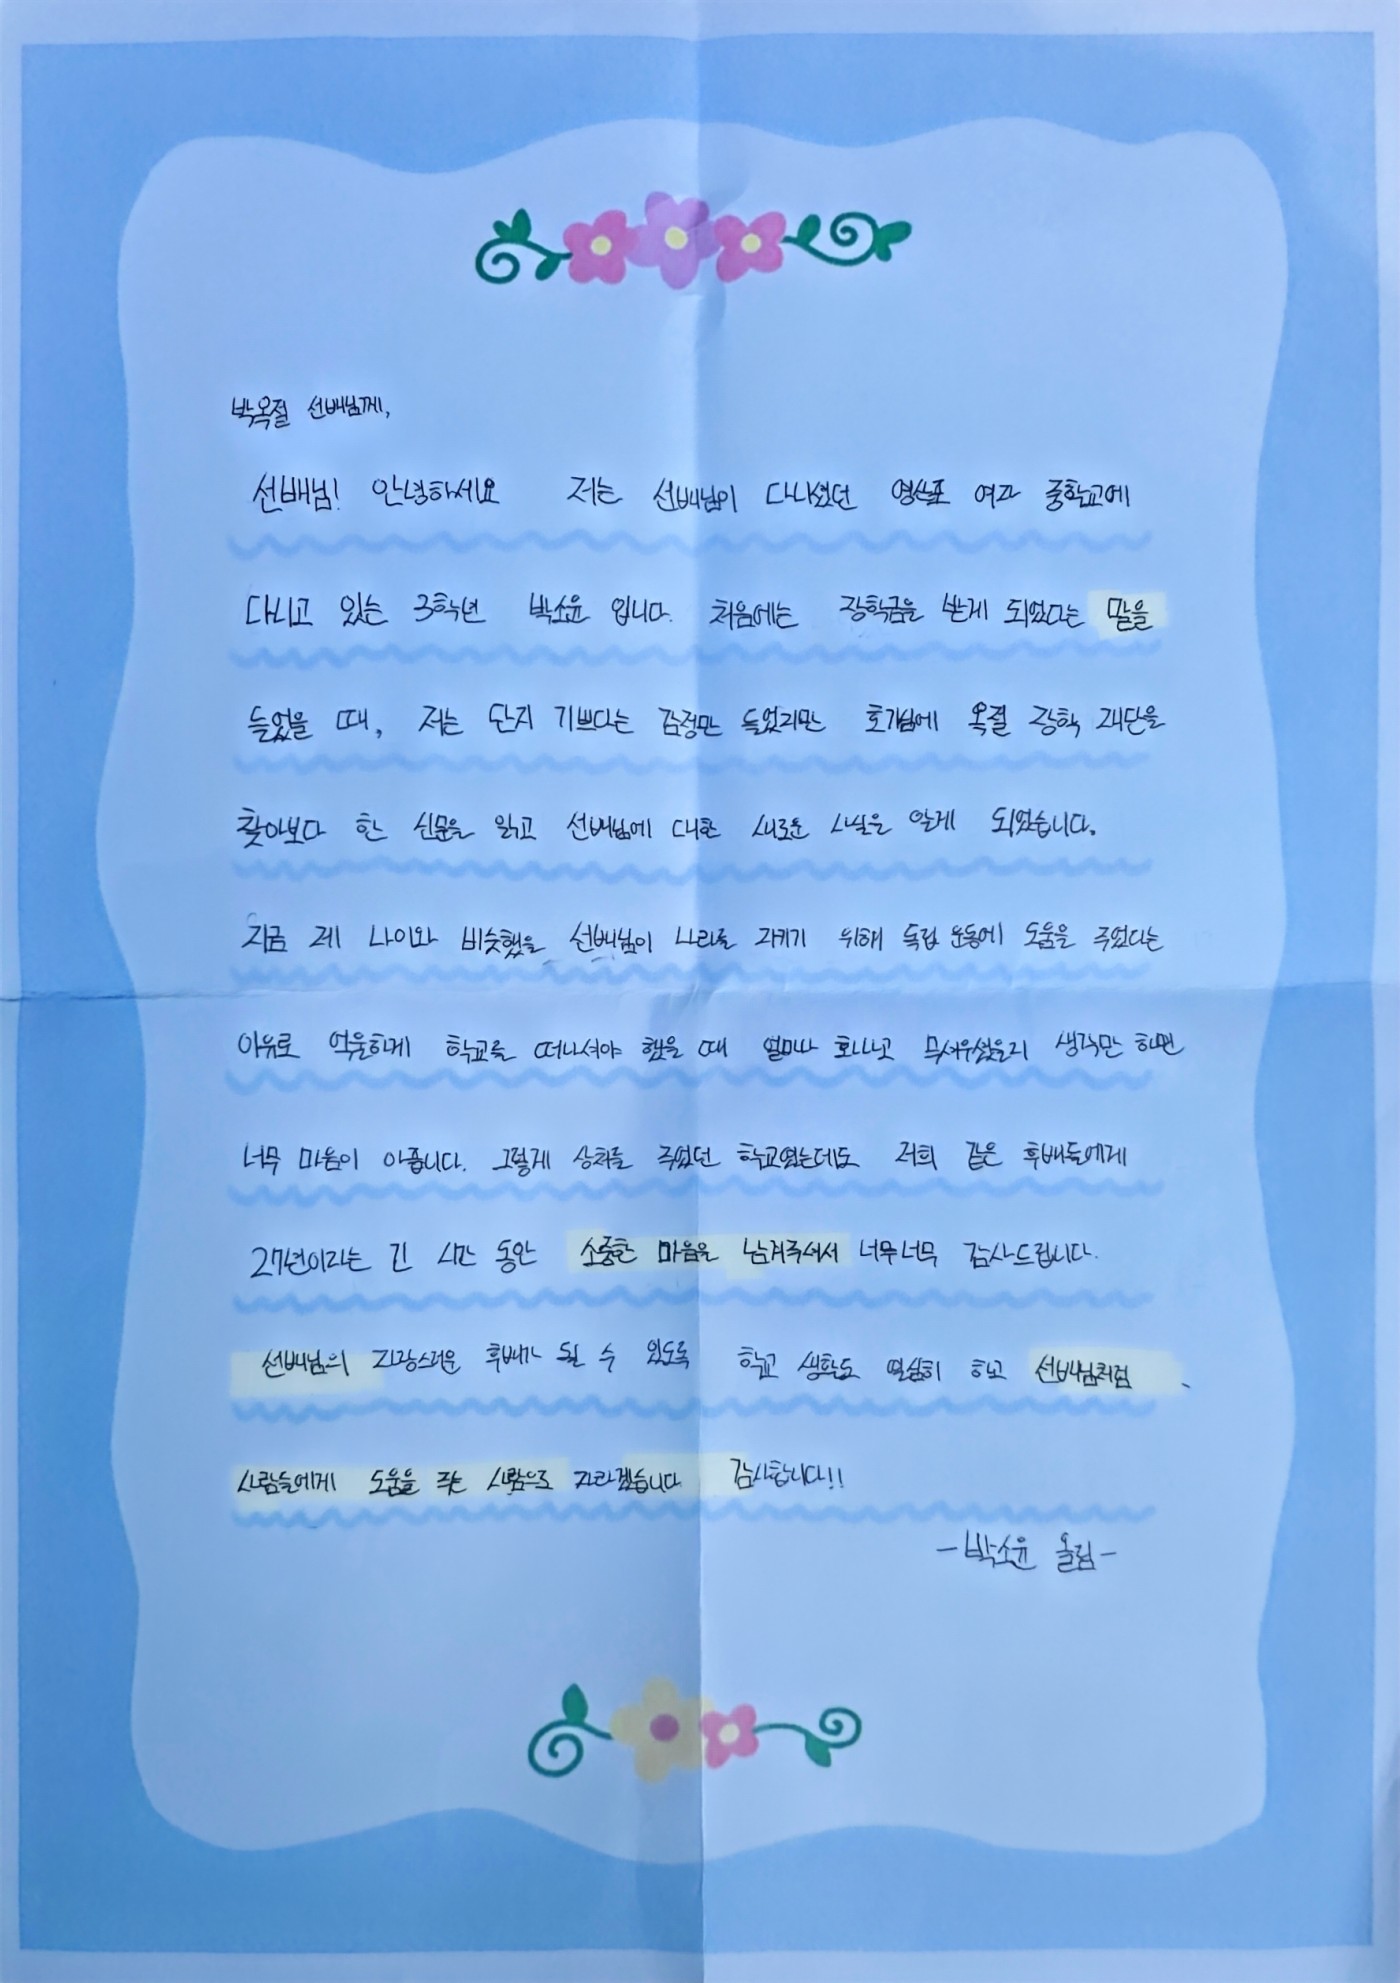 박옥절 선배님께,
선배님! 안녕하세요 저는 선배님이 다니셨던 영산포 여자 중학교에
다니고 있는 3학년 박소윤 입니다. 처음에는 장학금을 받게 되었다는 말을
들었을 때, 저는 단지 기쁘다는 감정만 들었지만 호기심에 옥절 장학 재단을
찾아보다 한 신문을 읽고 선배님에 대한 새로운 사실을 알게 되었습니다.
지금 제 나이와 비슷했을 선배님이 나라를 지키기 위해 독립 운동에 도움을 주었다는
이유로 억울하게 학교를 떠나셔야 했을 때 얼마나 화나고 무서우셨을지 생각만 하면
너무 마음이 아픕니다. 그렇게 상처를 주었던 학교였는데도 저희 같은 후배들에게
27년이라는 긴 시간 동안 소중한 마음을 남겨주셔서 너무너무 감사드립니다.
선배님의 자랑스러운 후배가 될 수 있도록 학교 생활도 열심히 하고 선배님처럼
사람들에게 도움을 주는 사람으로 자라겠습니다 감사합니다!!
-박소윤 올림-